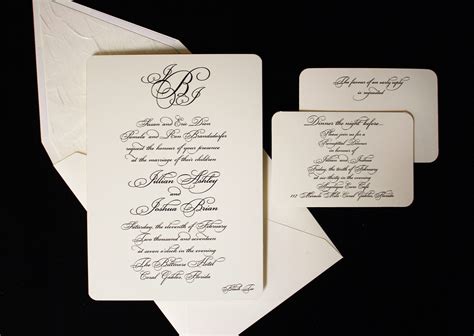 J B J
Susan and Eric Dion
Pamela and Ron Brandsdorfer
request the honour of your presence
at the marriage of their children
Jillian Ashley
and
Joshua Brian
Saturday, the eleventh of February
Two thousand and seventeen
at seven o'clock in the evening
The Biltmore Hotel
Coral Gables, Florida
Black Tie
The favour of an early reply
is requested
Dinner the night before...
Please join us for a
Rehearsal Dinner
in honour of
Jillian and Joshua
Friday, the tenth of February
at six thirty in the evening
Cafe
Miracle Mile Coral Gables, Florida